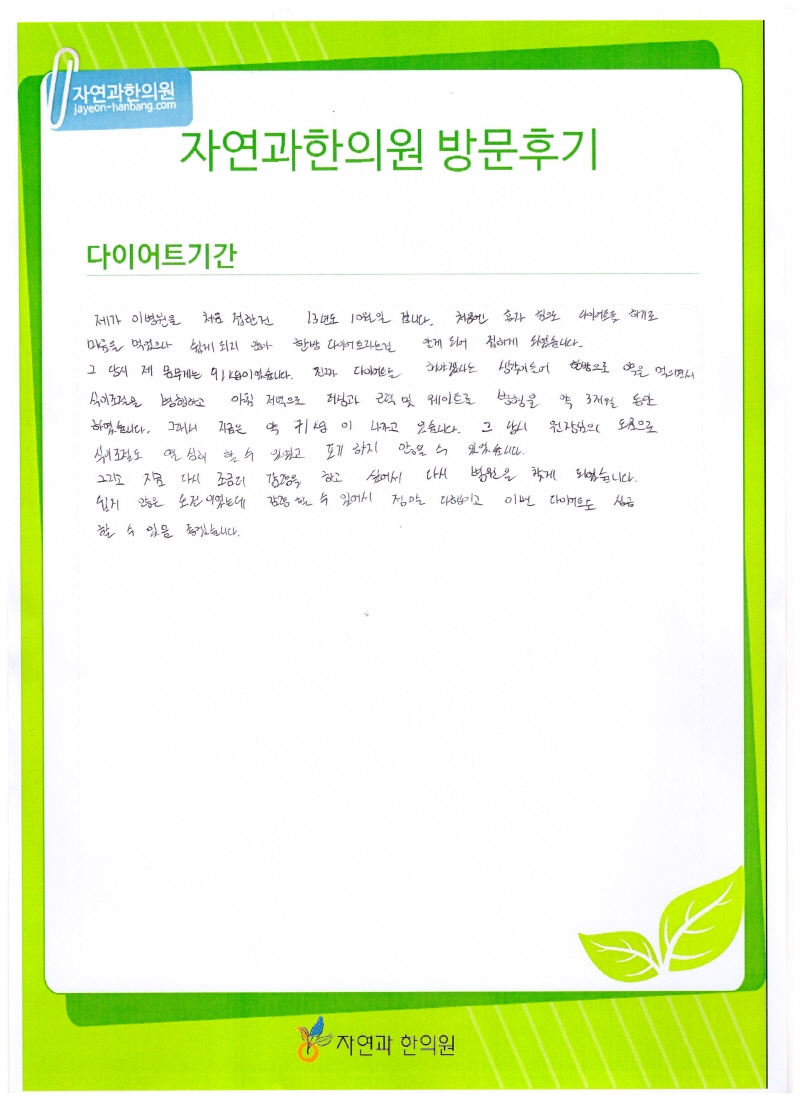 자연과한의원
jayeon-hanbang.com
자연과한의원 방문후기
다이어트기간
제가 이병원을 처음 접한건 13년도 10월일 겁니다. 처음엔 혼자 힘으로 다이어트를 하기로
마음을 먹었으나 쉽게 되지 않아 한방 다이어트라는걸 알게 되어 접하게 되었습니다.
그 당시 제 몸무게는 91kg이었습니다. 진짜 다이어트는 해야겠다는 생각이들어 한방으로 약을 먹으면서
식이조절을 병행하고 아침 저녁으로 러닝과 근력 및 웨이트로 병행을 약 3개월 동안
하였습니다. 그래서 지금은 약 71kg이 나가고 있습니다. 그 당시 원장님의 도움으로
식이조절도 열심히 할 수 있었고 포기 하지 않을 수 있었습니다.
그리고 지금 다시 조금더 감량을 하고 싶어서 다시 병원을 찾게 되었습니다.
쉽지 않은 도전이었는데 감량 할 수 있어서 정말 다행이고 이번 다이어트도 성공
할 수 있음 좋겠습니다.
자연과 한의원